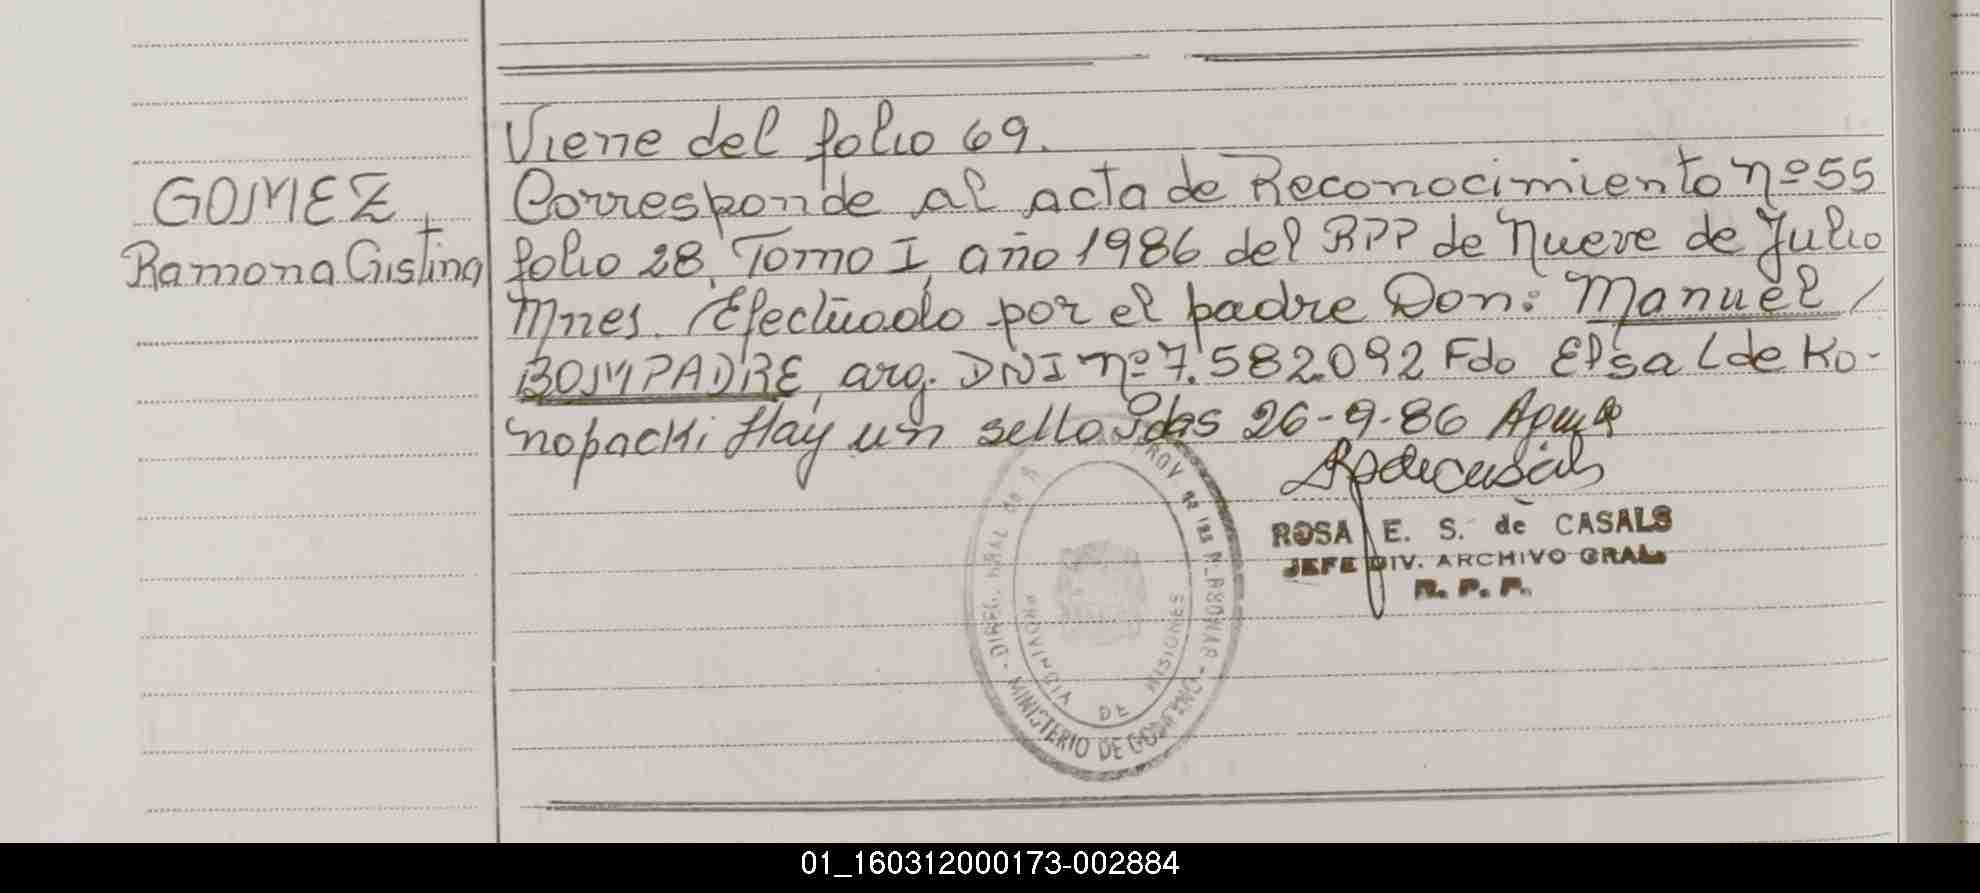 Viene del folio 69.
GOMEZ,
Ramona Cristina
Corresponde al acta de Reconocimiento nº 55
folio 28, Tomo I, año 1986 del RPP de Nueve de Julio
Mnes. Efectuado por el padre Don: Manuel
BOMPADRE, arg. DNI nº 7.582.092 Fdo Elsa L de Ko-
nopacki Hay un sello Pdas 26-9-86
ROSA E. S. de CASALS
JEFE DIV. ARCHIVO GRAL.
R. P. P.
MINISTERIO DE GOBIERNO
PROVINCIA DE MISIONES
01_160312000173-002884